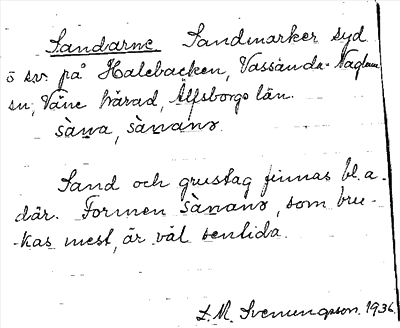 Sandarne Sandmarker syd
ö sv. på Halebacken, Vassända-Naglum
sn, Väne härad, Älfsborgs län.
sàna, sànanɘ.
Sand och grustag finnas bl.a.
där. Formen sànanɘ, som bru-
-kas mest, är väl sentida.
L.M. Svenungsson. 1936.